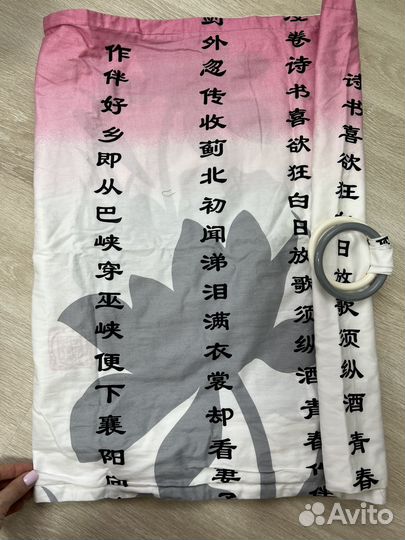 诗书喜欲狂白日放歌须纵酒青春
卷诗书喜欲狂白日放歌须纵酒青春作伴
剑外忽传收蓟北初闻涕泪满衣裳却看妻
作伴好乡即从巴峡穿巫峡便下襄阳向
Avito